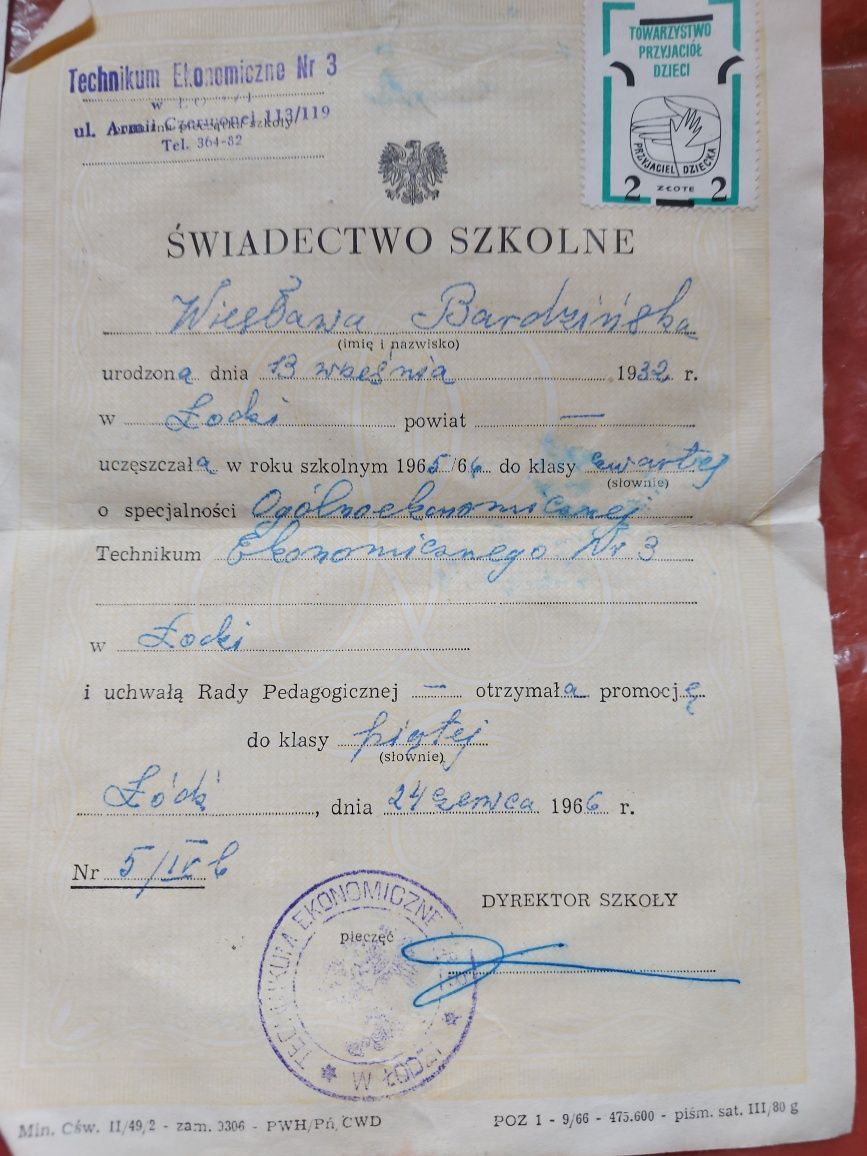 Technikum Ekonomiczne Nr 3
w
ul. Armii Czerwonej 113/119
szkoły
Tel. 364-82
TOWARZYSTWO
PRZYJACIÓŁ
DZIECI
PRZYJACIEL DZIECKA
2 ZŁOTE 2
ŚWIADECTWO SZKOLNE
Wiesława Bardzińska
(imię i nazwisko)
urodzona dnia 13 września 1932 r.
w Łodzi powiat —
uczęszczała w roku szkolnym 1965/66 do klasy czwartej
(słownie)
o specjalności Ogólnoekonomicznej
Technikum Ekonomicznego Nr 3
w Łodzi
i uchwałą Rady Pedagogicznej — otrzymała promocję
do klasy piątej
(słownie)
Łódź, dnia 24 czerwca 1966 r.
Nr 5/IV b
DYREKTOR SZKOŁY
pieczęć
TECHNIKUM EKONOMICZNE
W ŁODZI
Min. Ośw. II/49,2 - zam. 3306 - PWH/Pń, CWD
POZ 1 - 9/66 - 475.600 - piśm. sat. III/80 g